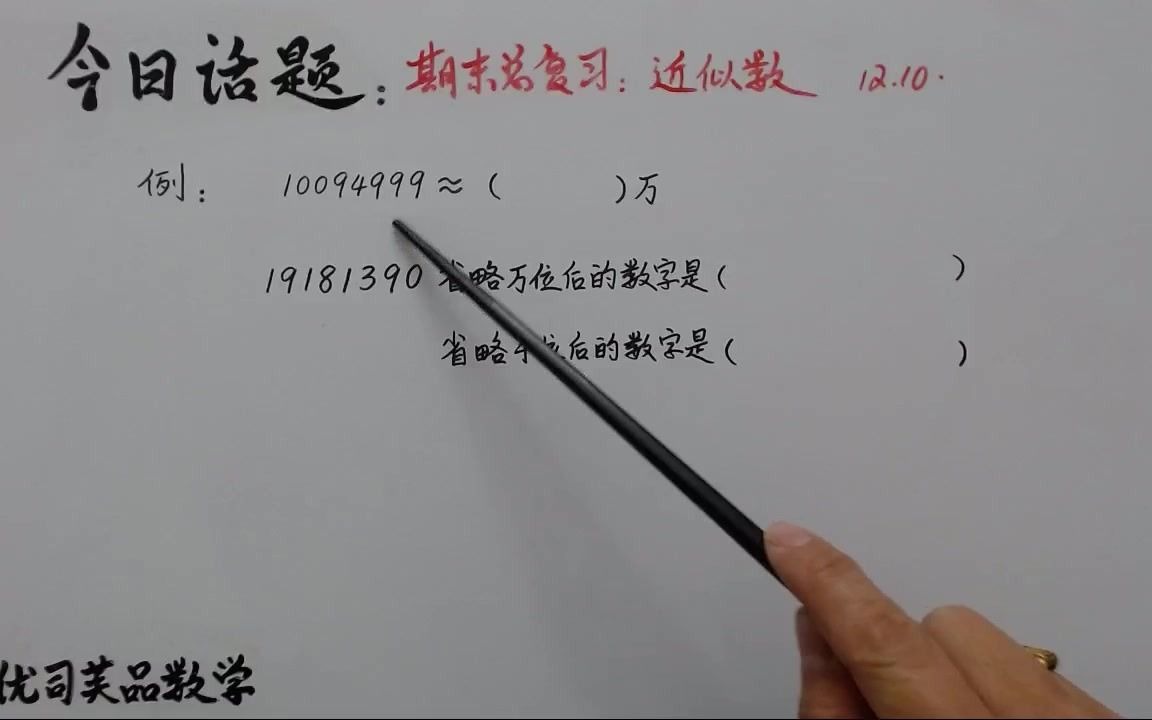 今日话题：期末总复习：近似数 12.10.
例： 10094999≈（ ）万
19181390 省略万位后的数字是（ ）
省略千位后的数字是（ ）
优司芙品数学